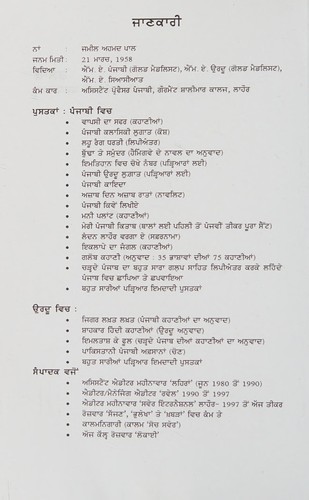 ਜਾਣਕਾਰੀ
ਨਾਂ : ਜਮੀਲ ਅਹਮਦ ਪਾਲ
ਜਨਮ ਮਿਤੀ : 21 ਮਾਰਚ, 1958
ਵਿਦਿਆ : ਐੱਮ. ਏ. ਪੰਜਾਬੀ (ਗੋਲਡ ਮੈਡਲਿਸਟ), ਐੱਮ. ਏ. ਉਰਦੂ (ਗੋਲਡ ਮੈਡਲਿਸਟ),
ਐੱਮ. ਏ. ਸਿਆਸੀਆਤ
ਕੰਮ ਕਾਰ : ਅਸਿਸਟੈਂਟ ਪ੍ਰੋਫੈਸਰ ਪੰਜਾਬੀ, ਗੌਰਮੈਂਟ ਸ਼ਾਲੀਮਾਰ ਕਾਲਜ, ਲਾਹੌਰ
ਪੁਸਤਕਾਂ : ਪੰਜਾਬੀ ਵਿਚ
• ਵਾਪਸੀ ਦਾ ਸਫਰ (ਕਹਾਣੀਆਂ)
• ਪੰਜਾਬੀ ਕਲਾਸਿਕੀ ਲੁਗਾਤ (ਕੋਸ਼)
• ਲਹੂ ਰੰਗ ਧਰਤੀ (ਲਿਪੀਅੰਤਰ)
• ਬੁੱਢਾ ਤੇ ਸਮੁੰਦਰ (ਹੈਮਿੰਗਵੇ ਦੇ ਨਾਵਲ ਦਾ ਅਨੁਵਾਦ)
• ਇਮਤਿਹਾਨ ਵਿਚ ਚੋਖੇ ਨੰਬਰ (ਪੜ੍ਹਿਆਰਾਂ ਲਈ)
• ਪੰਜਾਬੀ ਉਰਦੂ ਲੁਗਾਤ (ਪੜ੍ਹਿਆਰਾਂ ਲਈ)
• ਪੰਜਾਬੀ ਕਾਇਦਾ
• ਅਜ਼ਾਬ ਦਿਨ ਅਜ਼ਾਬ ਰਾਤਾਂ (ਨਾਵਲਿਟ)
• ਪੰਜਾਬੀ ਕਿਵੇਂ ਲਿਖੀਏ
• ਮਨੀ ਪਲਾਂਟ (ਕਹਾਣੀਆਂ)
• ਮੇਰੀ ਪੰਜਾਬੀ ਕਿਤਾਬ (ਬਾਲਾਂ ਲਈ ਪਹਿਲੀ ਤੋਂ ਪੰਜਵੀਂ ਤੀਕਰ ਪੂਰਾ ਸੈੱਟ)
• ਲੰਦਨ ਲਾਹੌਰ ਵਰਗਾ ਏ (ਸਫਰਨਾਮਾ)
• ਇਕਲਾਪੇ ਦਾ ਜੰਗਲ (ਕਹਾਣੀਆਂ)
• ਗਲੋਬ ਕਹਾਣੀ (ਅਨੁਵਾਦ : 35 ਭਾਸ਼ਾਵਾਂ ਦੀਆਂ 75 ਕਹਾਣੀਆਂ)
• ਚੜ੍ਹਦੇ ਪੰਜਾਬ ਦਾ ਬਹੁਤ ਸਾਰਾ ਗਲਪ ਸਾਹਿਤ ਲਿਪੀਅੰਤਰ ਕਰਕੇ ਲਹਿੰਦੇ
ਪੰਜਾਬ ਵਿਚ ਛਾਪਿਆ ਤੇ ਛਪਵਾਇਆ
• ਬਹੁਤ ਸਾਰੀਆਂ ਪੜ੍ਹਿਆਰ ਇਮਦਾਦੀ ਪੁਸਤਕਾਂ
ਉਰਦੂ ਵਿਚ :
• ਜਿਗਰ ਲਖ਼ਤ ਲਖ਼ਤ (ਪੰਜਾਬੀ ਕਹਾਣੀਆਂ ਦਾ ਅਨੁਵਾਦ)
• ਸ਼ਾਹਕਾਰ ਹਿੰਦੀ ਕਹਾਣੀਆਂ (ਉਰਦੂ ਅਨੁਵਾਦ)
• ਇਮਲਤਾਸ ਕੇ ਫੂਲ (ਚੜ੍ਹਦੇ ਪੰਜਾਬ ਦੀਆਂ ਕਹਾਣੀਆਂ ਦਾ ਅਨੁਵਾਦ)
• ਪਾਕਿਸਤਾਨੀ ਪੰਜਾਬੀ ਅਫ਼ਸਾਨਾ (ਚੋਣ)
• ਬਹੁਤ ਸਾਰੀਆਂ ਪੜ੍ਹਿਆਰ ਇਮਦਾਦੀ ਪੁਸਤਕਾਂ
ਸੰਪਾਦਕ ਵਜੋਂ
• ਅਸਿਸਟੈਂਟ ਐਡੀਟਰ ਮਹੀਨਾਵਾਰ 'ਲਹਿਰਾਂ' (ਜੂਨ 1980 ਤੋਂ 1990)
• ਐਡੀਟਰ/ਮੈਨੇਜਿੰਗ ਐਡੀਟਰ 'ਰਵੇਲ' 1990 ਤੋਂ 1997
• ਐਡੀਟਰ ਮਹੀਨਾਵਾਰ 'ਸਵੇਰ ਇੰਟਰਨੈਸ਼ਨਲ' ਲਾਹੌਰ– 1997 ਤੋਂ ਅੱਜ ਤੀਕਰ
• ਰੋਜ਼ਵਾਰ 'ਸੱਜਣ', 'ਭੁਲੇਖਾ' ਤੇ 'ਖ਼ਬਰਾਂ' ਵਿਚ ਕੰਮ ਤੇ
• ਕਾਲਮਨਿਗਾਰੀ (ਕਾਲਮ 'ਸੱਚ ਸਵੇਰ')
• ਅੱਜ ਕੱਲ੍ਹ ਰੋਜ਼ਵਾਰ 'ਲੋਕਾਈ'